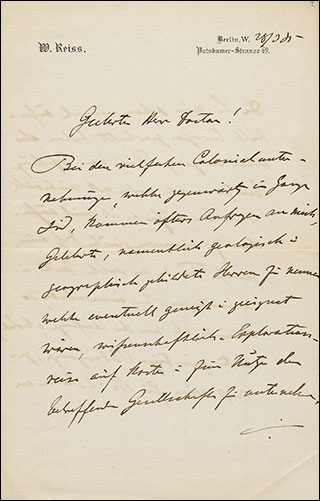 W. Reiss.
Berlin, W. 28/3 85
Potsdamer-Strasse 49.
Geehrter Herr Doctor!
Bei den vielfachen Colonialunter-
nehmungen, welche gegenwärtig im Gange
sind, kommen öfters Anfragen an mich,
Gelehrte, namentlich geologisch u
geographisch gebildete Herren zu nennen
welche eventuell geneigt u geeignet
wären, wissenschaftliche Explorations-
reisen auf Kosten u zum Nutzen der
betreffenden Gesellschaften zu unternehmen,